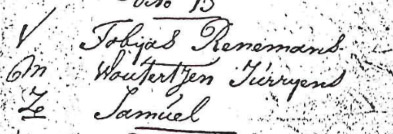 No 13
V Tobijas Renemans
On Woutertjen Jürryens
Ze Samúel